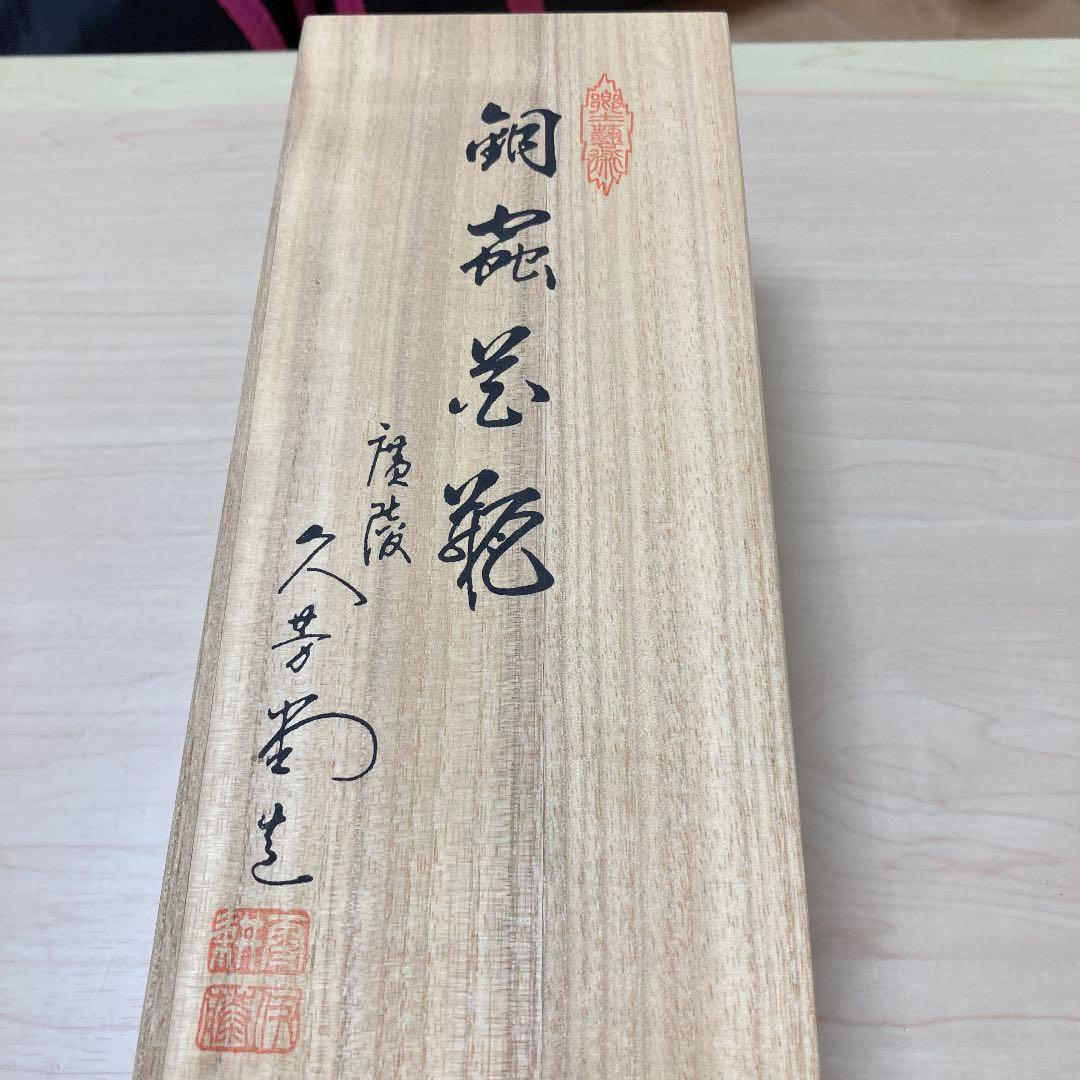 郷土藝術
銅蟲花瓶
廣陵
久芳堂造